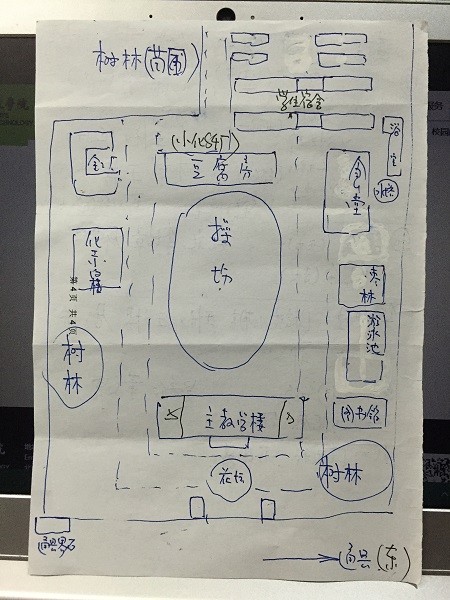 树林(苗圃)
学生宿舍
浴室
(小化S4厂)
豆腐房
食堂
水塔
操场
化工楼
第4页 共4页
枣林
游泳池
树林
主教学楼
图书馆
花坛
树林
通县(东)